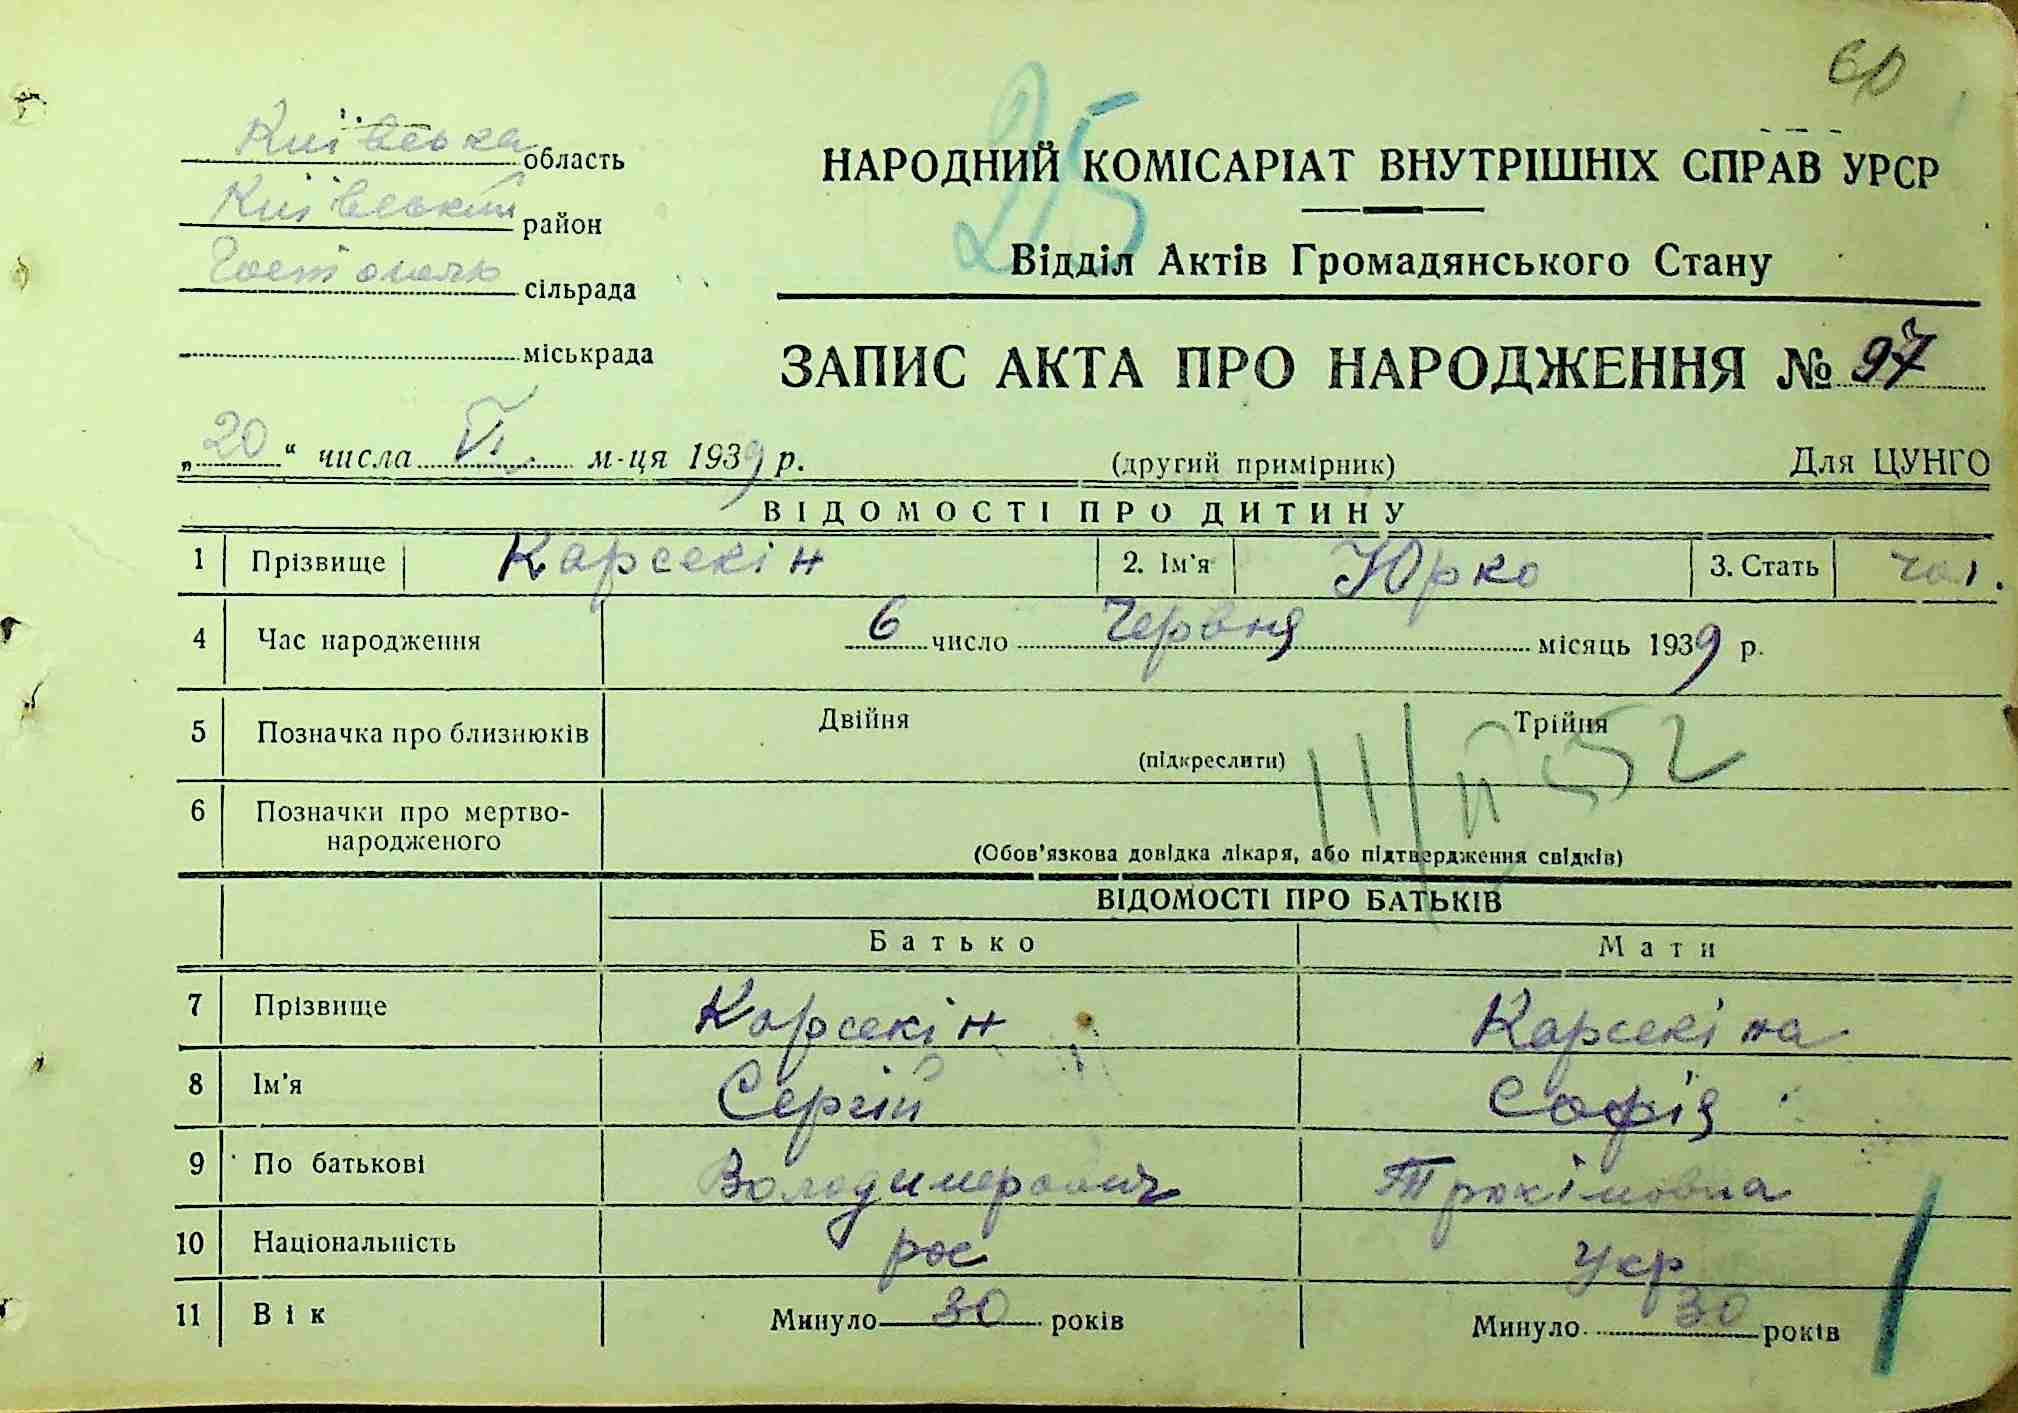 Київська область
Київський район
Гостомель сільрада
міськрада
25
НАРОДНИЙ КОМІСАРІАТ ВНУТРІШНІХ СПРАВ УРСР
Відділ Актів Громадянського Стану
ЗАПИС АКТА ПРО НАРОДЖЕННЯ № 97
„20“ числа VI м-ця 1939 р. (другий примірник) Для ЦУНГО
ВІДОМОСТІ ПРО ДИТИНУ
1 Прізвище Карсекін 2. Ім'я Юрко 3. Стать чол.
4 Час народження 6 число Червня місяць 1939 р.
5 Позначка про близнюків Двійня Трійня
(підкреслити)
6 Позначки про мертво-
народженого
(Обов'язкова довідка лікаря, або підтвердження свідків)
ВІДОМОСТІ ПРО БАТЬКІВ
Батько Мати
7 Прізвище Карсекін Карсекіна
8 Ім'я Сергій Софія
9 По батькові Володимерович Трохімовна
10 Національність рос укр
11 Вік Минуло 30 років Минуло 30 років